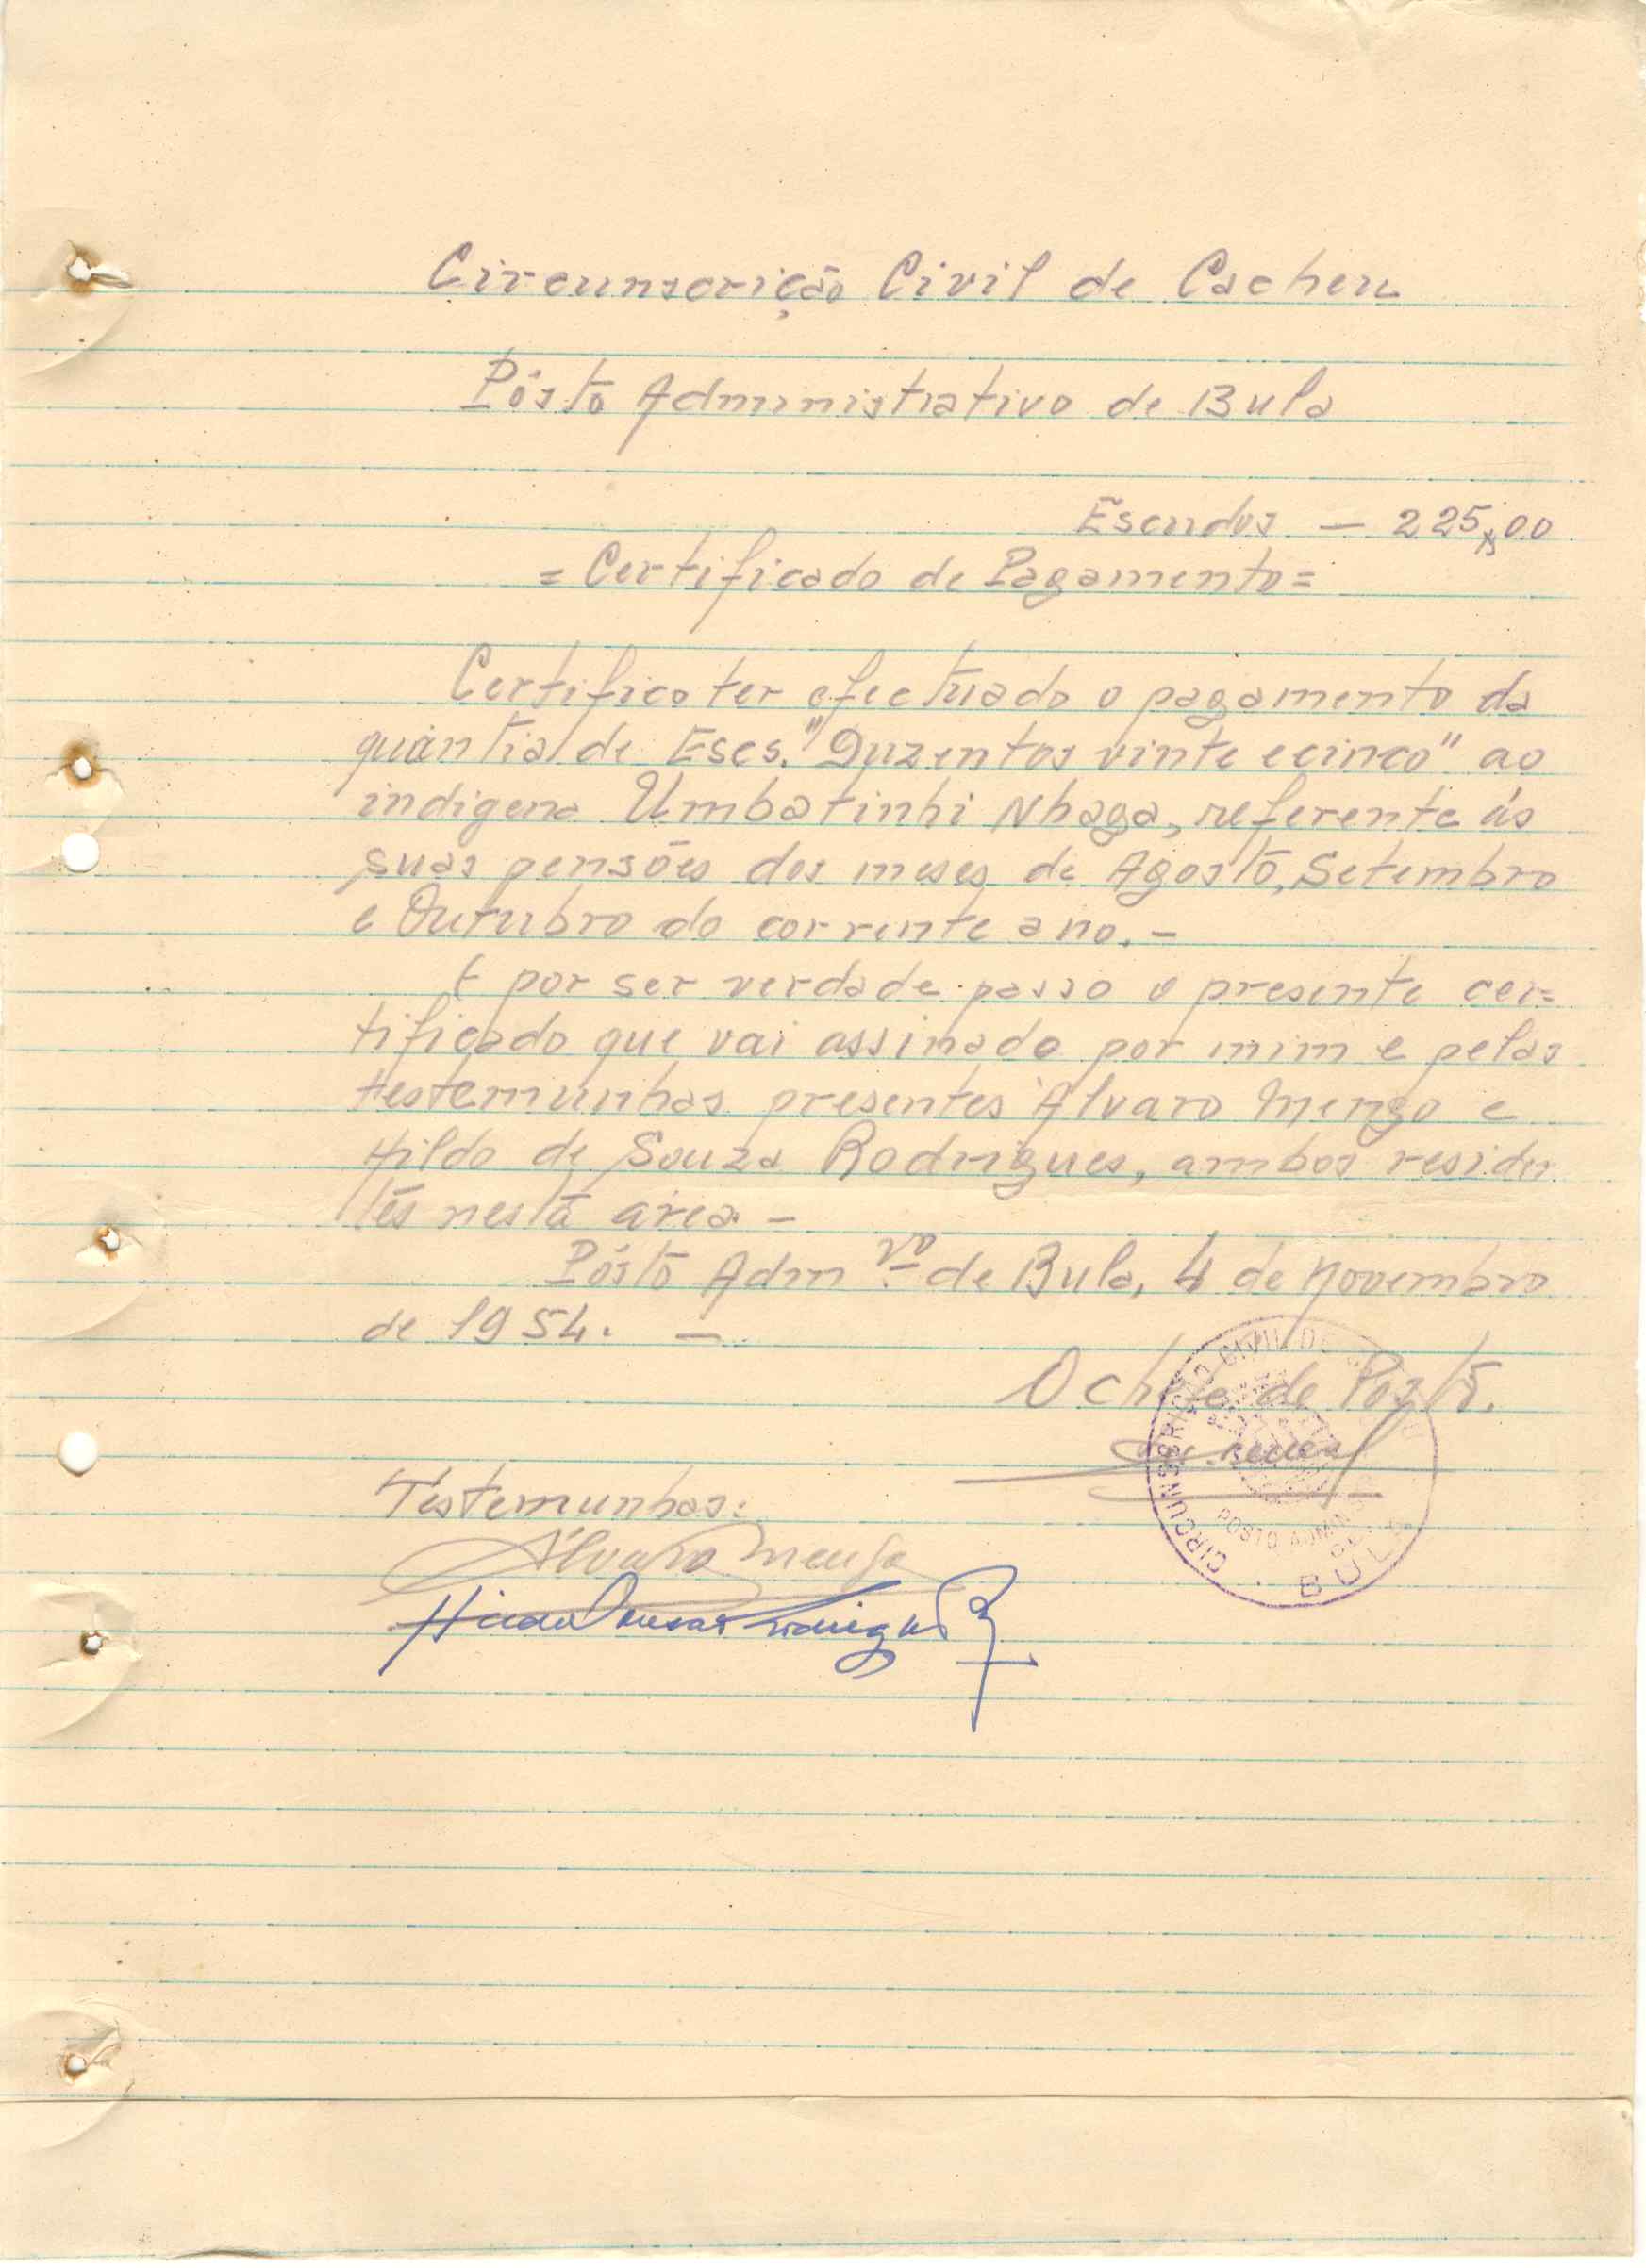 Circunscrição Civil de Cacheu
Pôsto Administrativo de Bula
Escudos — 225$00
= Certificado de Pagamento =
Certifico ter efectuado o pagamento da
quantia de Escs. "Duzentos vinte e cinco" ao
indigena Umbatinhi Nhaga, referente ás
suas pensões dos meses de Agosto, Setembro
e Outubro do corrente ano. -
E por ser verdade passo o presente cer=
tificado que vai assinado por mim e pelas
testemunhas presentes Alvaro Menzo e
Hildo de Souza Rodrigues, ambos residen
tes nesta área -
Pôsto Adm.vo de Bula, 4 de Novembro
de 1954. —
O chefe de Posto.
CIRCUNSCRIÇÃO CIVIL DE
POSTO ADMIN
BULA
Testemunhas:
Álvaro